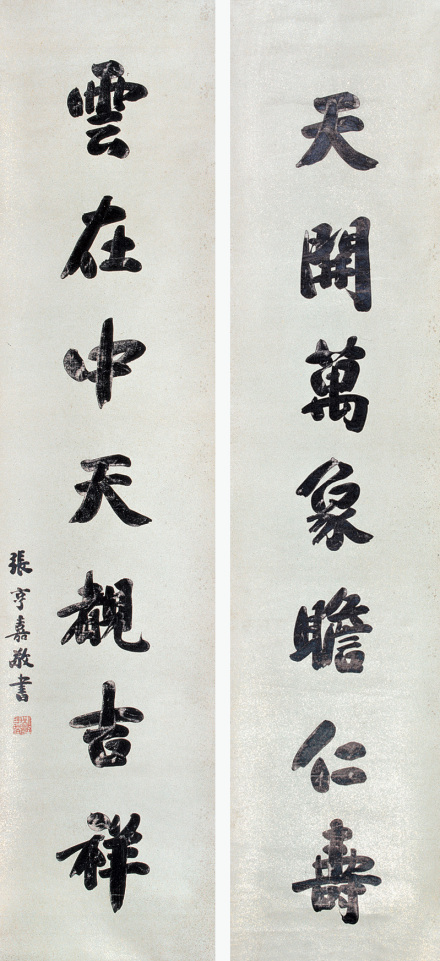 天開萬象瞻仁壽
雲在中天觀吉祥
張亨嘉敬書